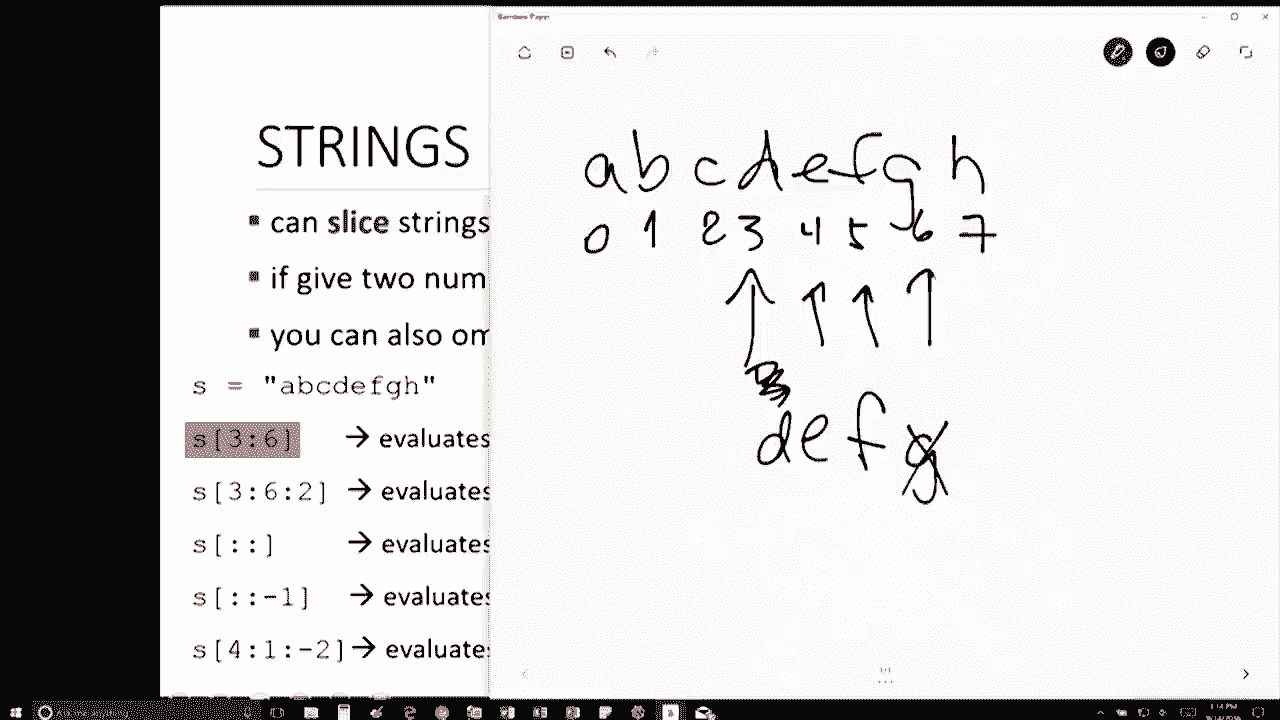 STRINGS
can slice strings
if give two num
you can also om
s = "abcdefgh"
s[3:6] → evaluates
s[3:6:2] → evaluates
s[::] → evaluates
s[::-1] → evaluates
s[4:1:-2] → evaluates
a b c d e f g h
0 1 2 3 4 5 6 7
d e f g
1/1